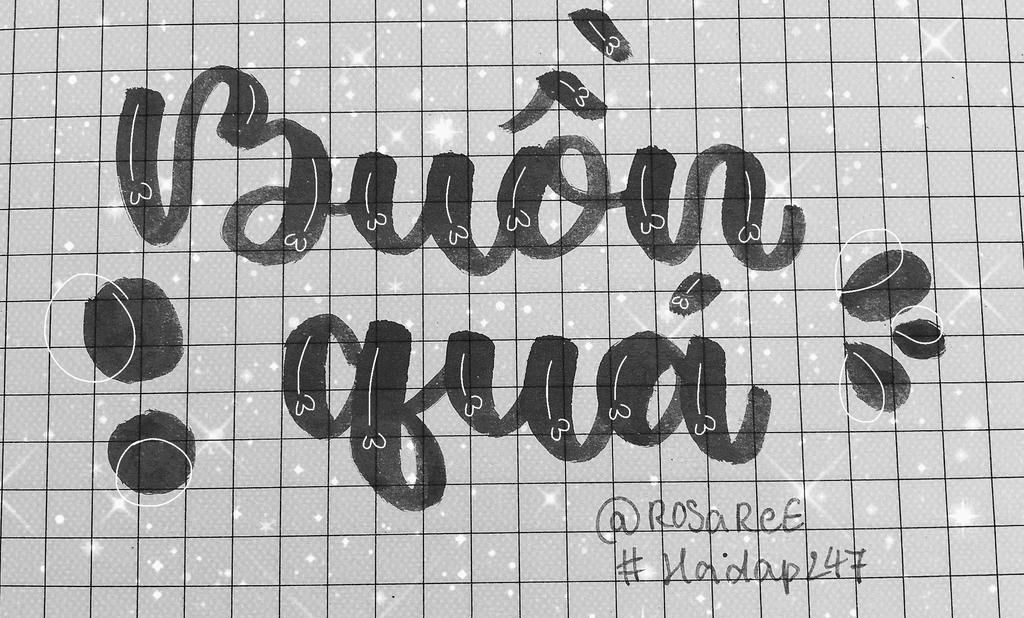 Buồn
quá
@ROSaReE
#Haidap247